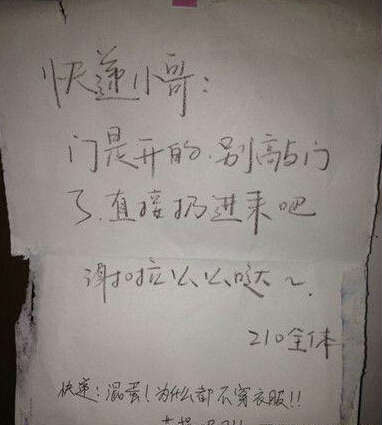 快递小哥：
门是开的.别敲门
了.直接扔进来吧
谢拉么么哒～.
210全体
快递：混蛋！为什么都不穿衣服！！